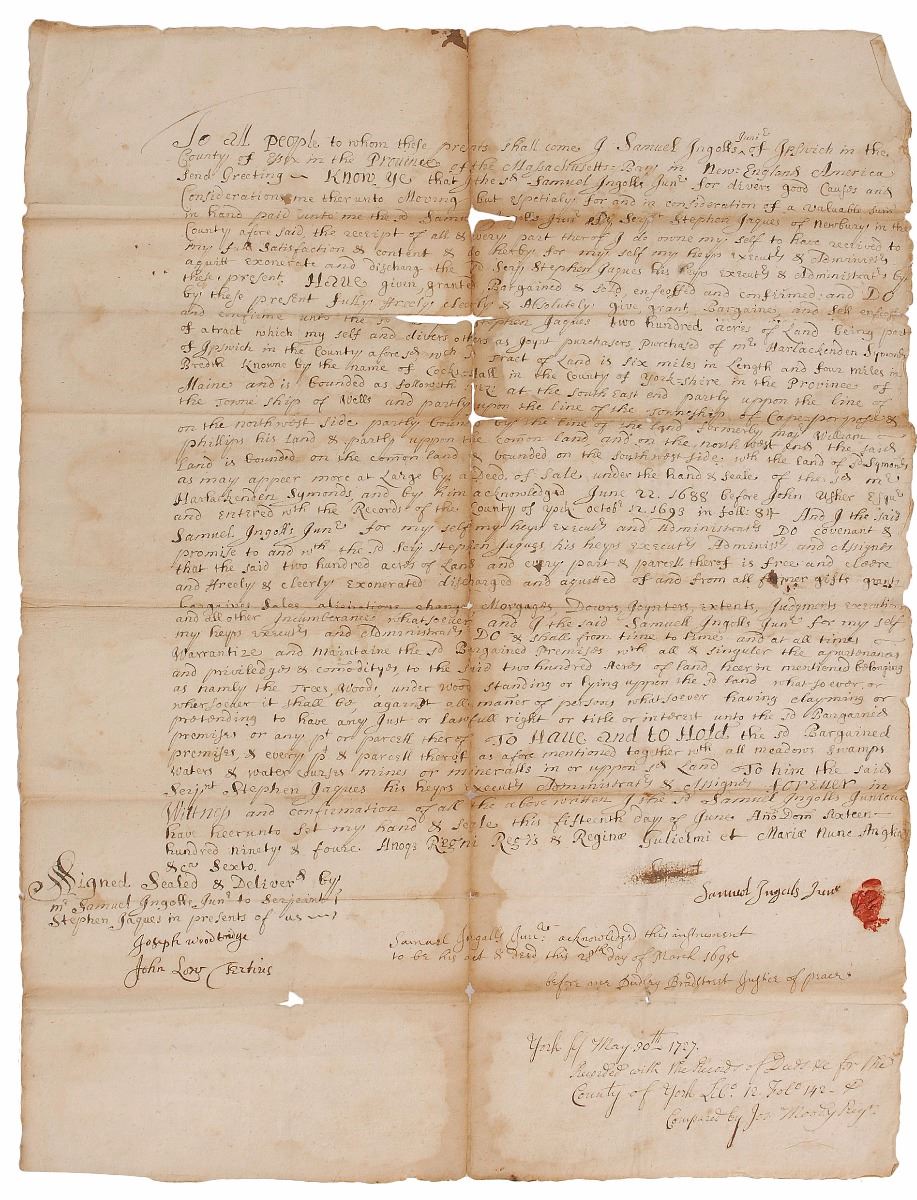 To All people to whom these presents shall come I Samuel Ingolls Junr of Ipswich in the
County of Essx in the Province of the Massachusetts-Bay in New-England America
Send Greeting Know Ye that I the sd Samuel Ingolls Junr for divers good Causes and
Considerations me therunto Moving but espetialy for and in consideration of a valuable sum
in hand paid unto me the sd Samuel Junr by Serjt Stephen Jaques of Newbury in the
County afore said, the receipt of all & every part therof I do owne my self to have received to
my full Satisfaction & content & do herby for my self my heyrs execut.s & Administ.s
aquitt exonerate and discharge the sd Serjt Stephen Jaques his heyrs execut.s & administrat.s by
these present Haue given granted Bargained & sold, enfeoffed and confirmed: and DO
by these present fully freely cleerly & Absolutely give, grant, Bargaine, and sell enfeoff
and confirme unto the sd Stephen Jaques two hundred acres of Land being part
of a tract which my self and divers others as Joynt purchasers purchased of mr Harlackenden Symonds
of Ipswich in the County afore sd wch sd tract of Land is six miles in Length and four miles in
Bredth Knowne by the name of Cocks-Hall in the County of York-shire in the Province of
Maine and is bounded as followeth viz at the South East end partly upon the line of
the Towne ship of Wells and partly upon the line of the Townshp of Cape-porpose &
on the northwest side partly bound by the line of the land formerly majr William
phillips his Land & partly uppon the comon land and on the north west end the said
Land is bounded on the comon land & bounded on the southwest side wth the land of sd Symonds
as may appeer more at Large by a Deed of Sale under the hand & seale of the sd mr
Harlackenden Symonds and by him acknowledgd June 22. 1688 before John Usher Esqr
and entered with the Records of the County of York Octobr 12. 1693 in foll: 84 And I the said
Samuel Ingolls Junr for my self my heyrs execut.s and Administrat.s DO covenant &
promise to and wth the sd Serjt Stephen Jaques his heyrs execut.s Administ.s and assignes
that the said two hundred acres of Land and every part & parcell therof is free and cleere
and freely & cleerly exonerated discharged and aquitted of and from all former gifts grants
bargaines Sales alienations Morgages, Dowrs, Joynters, extents, Judgments execution
and all other Incumberances whatsoever and I the said Samuell Ingolls Junr for my self
my heyrs execut.s and administrat.s DO & shall from time to time and at all times
Warrantize and Maintaine the sd Bargained premises with all & singuler the apurtenances
and priviledges & comodityes to the said two hundred Acres of land heer in mentioned belonging
as namly the Trees, Woods, under wood standing or lying uppon the sd land what so ever or
wher soever it shall be, against all maner of persons whatsoever having clayming or
pretending to have any Just or lawfull right or title or interest unto the sd Bargained
premises or any pt or parcell therof To Haue and to Hold the sd Bargained
premises & every pt & parcell therof as afore mentioned together wth all meadows swamps
waters & water courses mines or mineralls in or upon sd Land To him the said
Serjnt Stephen Jaques his heyrs execut.s Administrat.s & Assignes foreuer in
Wittness and confirmation of all the above written I the sd Samuel Ingolls Juniour
have heerunto set my hand & seale this fifteenth day of June Ano Dom sixteen
hundred ninety & foure. Anoqs Regni Regis & Reginæ Gulielmi et Mariæ Nunc Angliæ
&ca Sexto.
Signed Sealed & Deliverd by
mr Samuel Ingolls Junr to Serjeant
Stephen Jaques in presents of us
Samuel Ingols Junr
Joseph woodbridge
John Low Tertius
Samuel Ingolls Junr: acknowledged this instrument
to be his act & deed this 28th day of March 1695
before me Dudley Bradstreet Justice of peace
York ss May 30th 1727.
Recorded with the Records of Deeds &c for the
County of York Libo. 12. Folo 142
Compared by Jos: Moody Regr